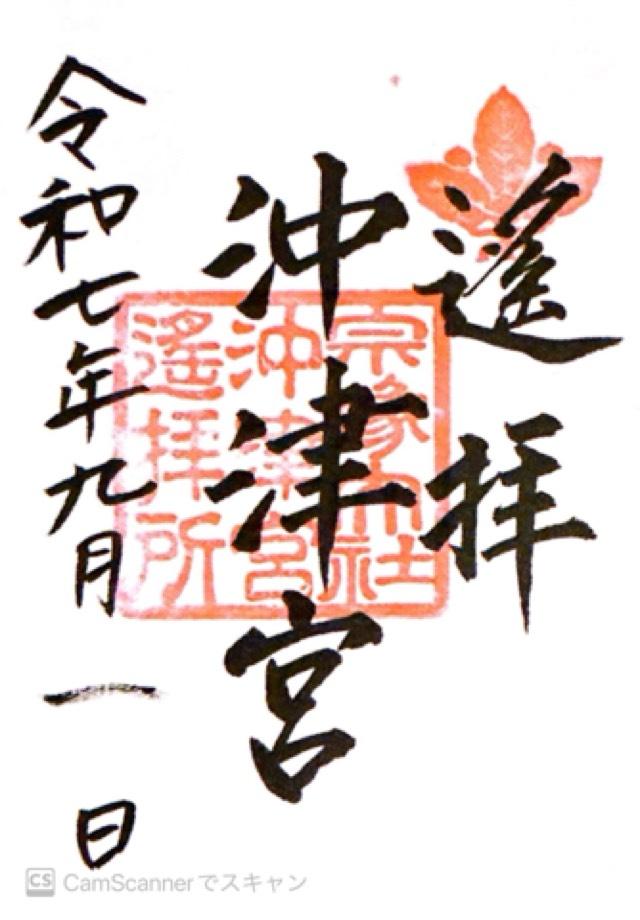 遥拝
沖津宮
令和七年九月一日
宗像大社
沖津宮
遥拝所
CS CamScannerでスキャン